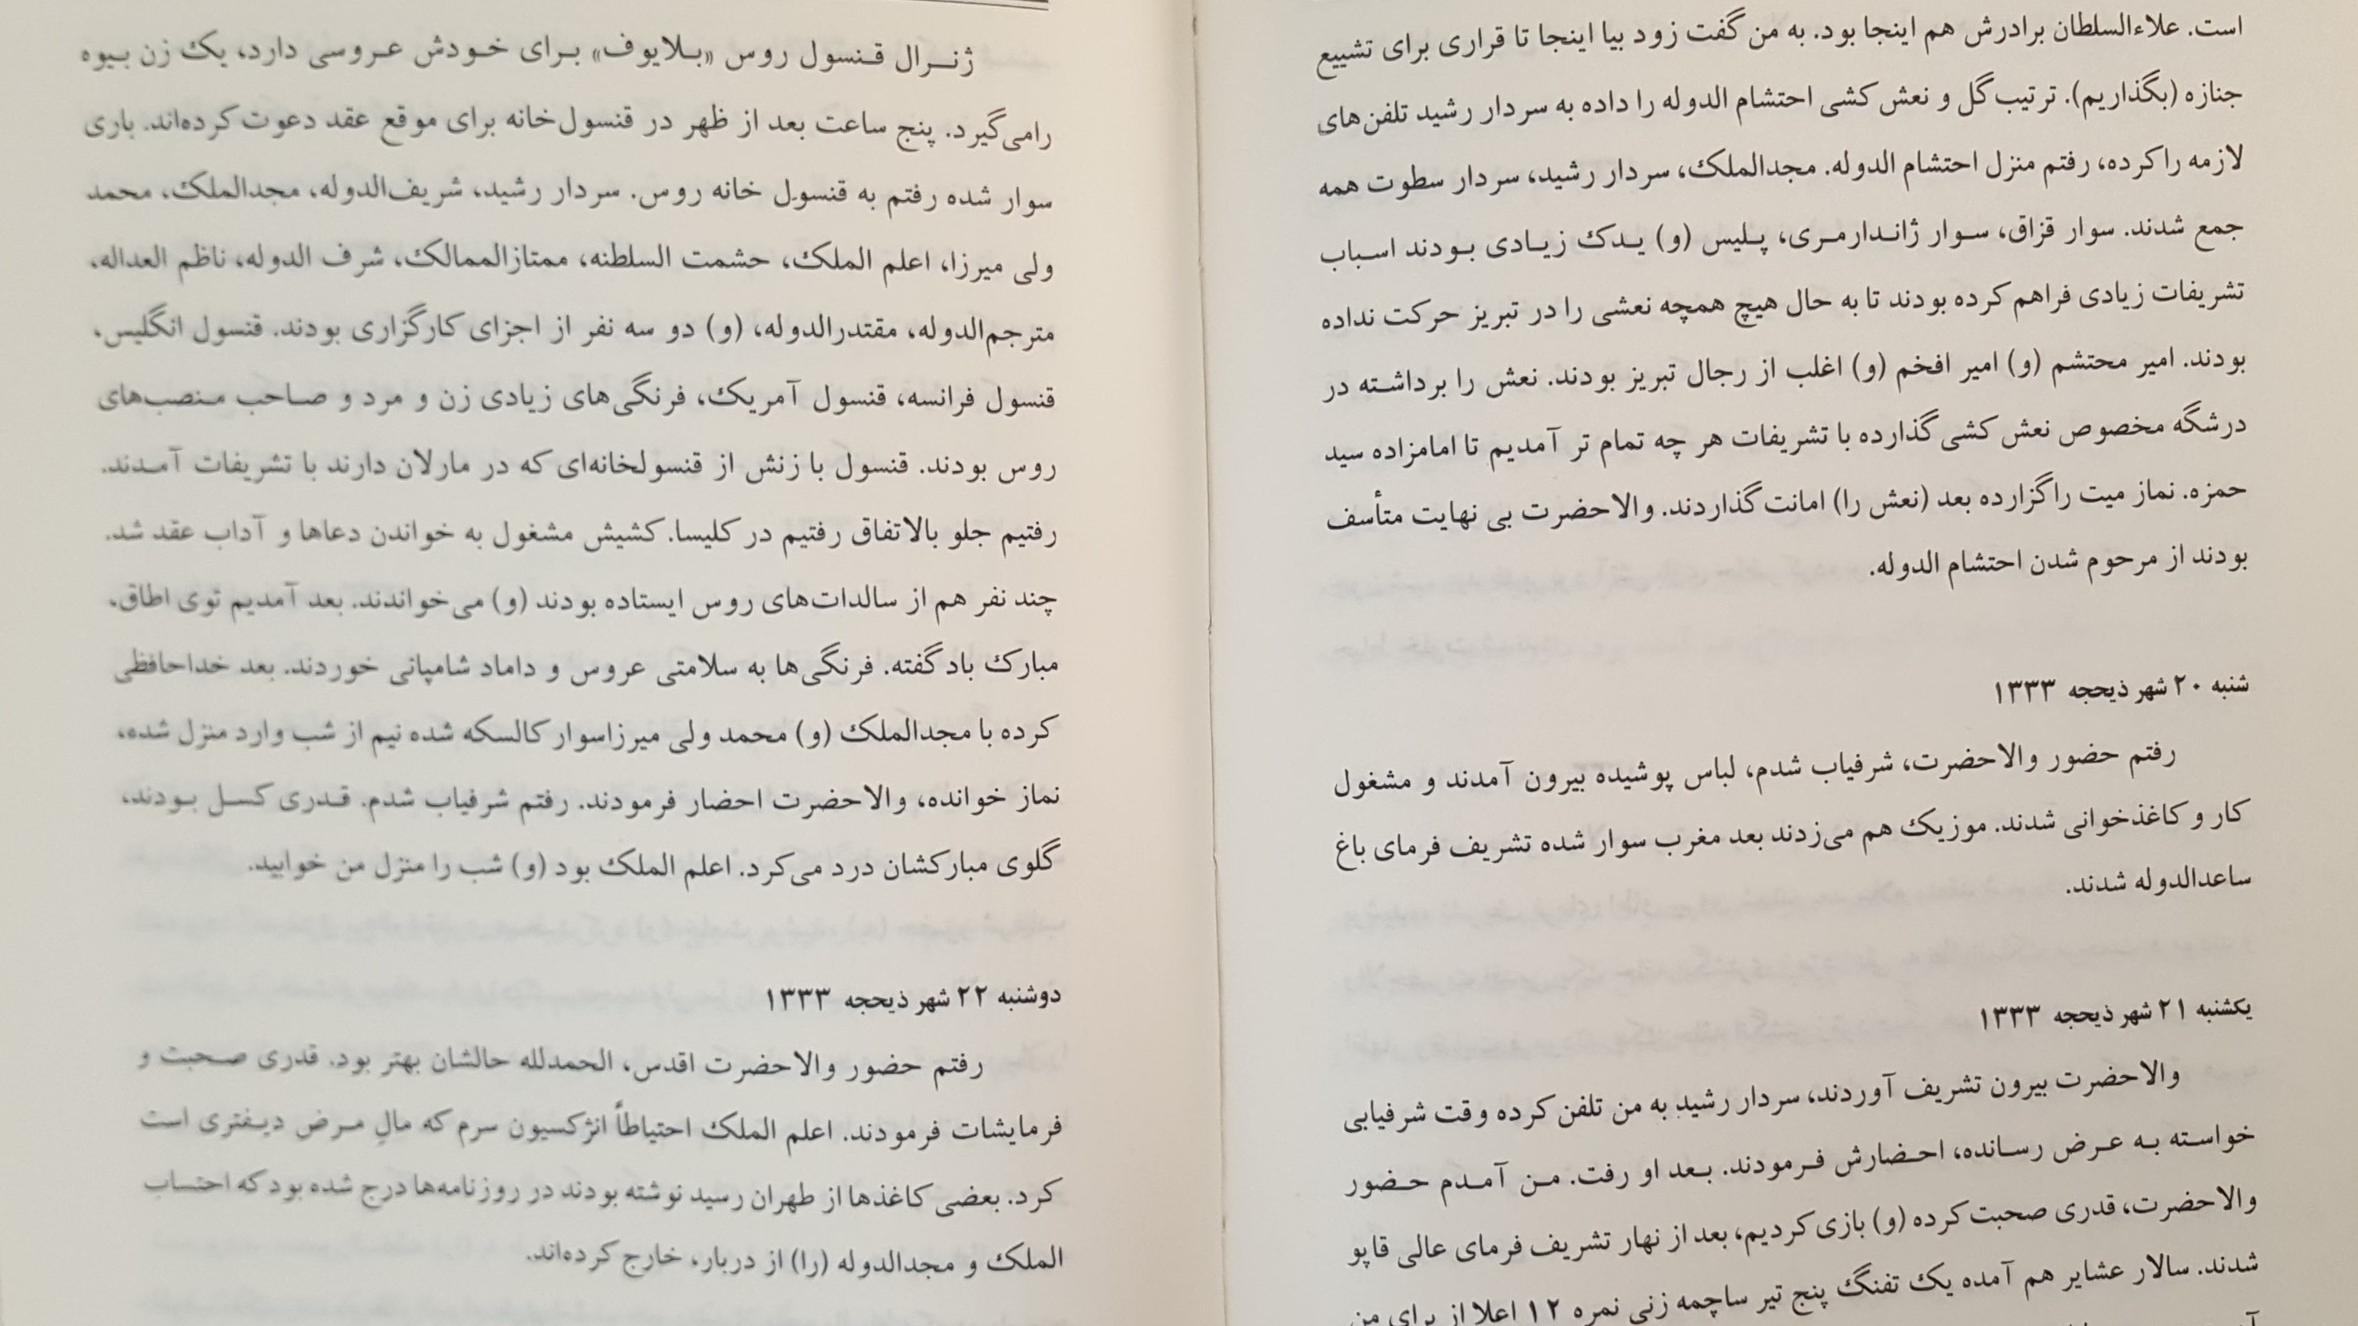 است. علاءالسلطان برادرش هم اینجا بود. به من گفت زود بیا اینجا تا قراری برای تشییع
جنازه (بگذاریم). ترتیب گل و نعش کشی احتشام الدوله را داده به سردار رشید تلفن‌های
لازمه را کرده، رفتم منزل احتشام الدوله. مجدالملک، سردار رشید، سردار سطوت همه
جمع شدند. سوار قزاق، سوار ژاندارمری، پلیس (و) یدک زیادی بودند اسباب
تشریفات زیادی فراهم کرده بودند تا به حال هیچ همچه نعشی را در تبریز حرکت نداده
بودند. امیر محتشم (و) امیر افخم (و) اغلب از رجال تبریز بودند. نعش را برداشته در
درشگه مخصوص نعش کشی گذارده با تشریفات هر چه تمام تر آمدیم تا امامزاده سید
حمزه. نماز میت را گزارده بعد (نعش را) امانت گذاردند. والاحضرت بی نهایت متأسف
بودند از مرحوم شدن احتشام الدوله.
شنبه ۲۰ شهر ذیحجه ۱۳۳۳
رفتم حضور والاحضرت، شرفیاب شدم، لباس پوشیده بیرون آمدند و مشغول
کار و کاغذخوانی شدند. موزیک هم می‌زدند بعد مغرب سوار شده تشریف فرمای باغ
ساعدالدوله شدند.
یکشنبه ۲۱ شهر ذیحجه ۱۳۳۳
والاحضرت بیرون تشریف آوردند، سردار رشید به من تلفن کرده وقت شرفیابی
خواسته به عرض رسانده، احضارش فرمودند. بعد او رفت. من آمدم حضور
والاحضرت، قدری صحبت کرده (و) بازی کردیم، بعد از نهار تشریف فرمای عالی قاپو
شدند. سالار عشایر هم آمده یک تفنگ پنج تیر ساچمه زنی نمره ۱۲ اعلا از برای من
ژنرال قنسول روس «بلایوف» برای خودش عروسی دارد، یک زن بیوه
رامی‌گیرد. پنج ساعت بعد از ظهر در قنسول‌خانه برای موقع عقد دعوت کرده‌اند. باری
سوار شده رفتم به قنسول خانه روس. سردار رشید، شریف‌الدوله، مجدالملک، محمد
ولی میرزا، اعلم الملک، حشمت السلطنه، ممتازالممالک، شرف الدوله، ناظم العداله،
مترجم‌الدوله، مقتدرالدوله، (و) دو سه نفر از اجزای کارگزاری بودند. قنسول انگلیس،
قنسول فرانسه، قنسول آمریک، فرنگی‌های زیادی زن و مرد و صاحب منصب‌های
روس بودند. قنسول با زنش از قنسولخانه‌ای که در مارلان دارند با تشریفات آمدند.
رفتیم جلو بالاتفاق رفتیم در کلیسا. کشیش مشغول به خواندن دعاها و آداب عقد شد.
چند نفر هم از سالدات‌های روس ایستاده بودند (و) می‌خواندند. بعد آمدیم توی اطاق،
مبارک باد گفته. فرنگی‌ها به سلامتی عروس و داماد شامپانی خوردند. بعد خداحافظی
کرده با مجدالملک (و) محمد ولی میرزاسوار کالسکه شده نیم از شب وارد منزل شده،
نماز خوانده، والاحضرت احضار فرمودند. رفتم شرفیاب شدم. قدری کسل بودند،
گلوی مبارکشان درد می‌کرد. اعلم الملک بود (و) شب را منزل من خوابید.
دوشنبه ۲۲ شهر ذیحجه ۱۳۳۳
رفتم حضور والاحضرت اقدس، الحمدلله حالشان بهتر بود. قدری صحبت و
فرمایشات فرمودند. اعلم الملک احتیاطاً انژکسیون سرم که مالِ مرض دیفتری است
کرد. بعضی کاغذها از طهران رسید نوشته بودند در روزنامه‌ها درج شده بود که احتساب
الملک و مجدالدوله (را) از دربار، خارج کرده‌اند.